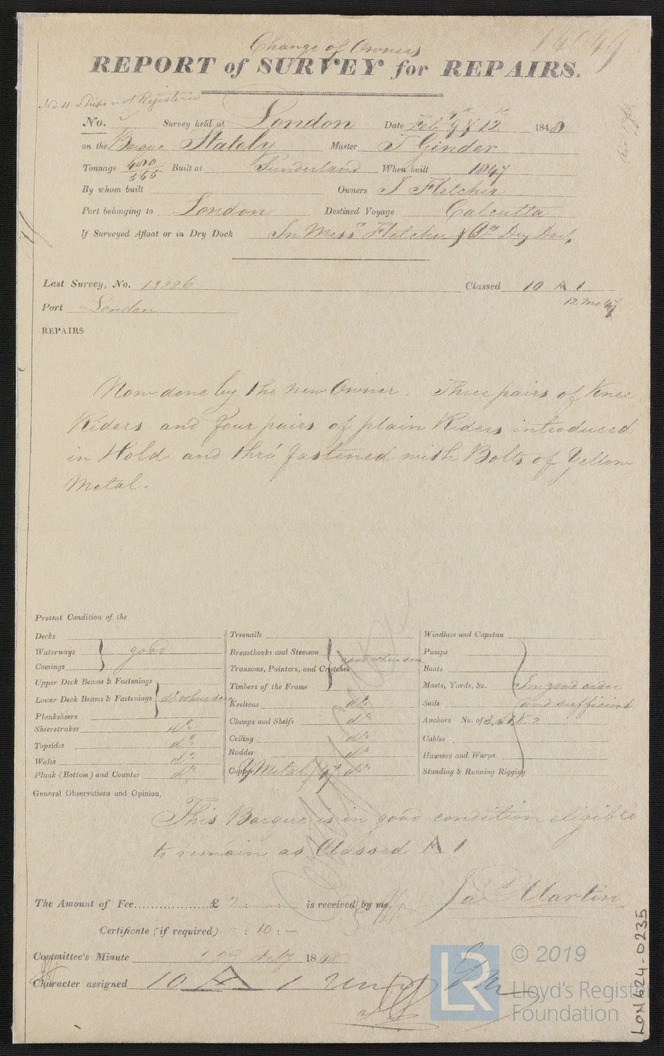 Change of Owners
REPORT of SURVEY for REPAIRS.
No. Survey held at London Date Feby 9 & 12 1848
on the Barque Stately Master J Ginder
Tonnage 400/365 Built at Sunderland When built 1847
By whom built Owners J Fletcher
Port belonging to London Destined Voyage Calcutta
If Surveyed Afloat or in Dry Dock In Messrs Fletcher & Cos Dry Dock,
Last Survey, No. Classed 10 A 1
Port London 12 Mo 47
REPAIRS
Now done by the new Owner. Three pairs of Knee
Riders and four pairs of plain Riders introduced
in Hold and thro' fastened with Bolts of Yellow
Metal.
Present Condition of the
Decks
Waterways good
Comings
Upper Deck Beams & Fastenings
Lower Deck Beams & Fastenings do where seen
Planksheers
Sheerstrakes do
Topsides do
Wales do
Plank (Bottom) and Counter do
Treenails
Breasthooks and Stemson
Transoms, Pointers, and Crutches good where seen
Timbers of the Frame
Keelsons do
Clamps and Shelfs do
Ceiling do
Rudder do
Copper Y Metal do
Windlass and Capstan
Pumps
Boats
Masts, Yards, &c. In good order
Sails and sufficient
Anchors No. of
Cables
Hawsers and Warps
Standing & Running Rigging
General Observations and Opinion,
This Barque is in good condition eligible
to remain as Classed A 1
The Amount of Fee £ is received by me,
Jas Martin
Certificate (if required) : 10 : -
Committee's Minute 1848
Character assigned 10 A 1
© 2019
Lloyd's Register
Foundation
LON624-0235